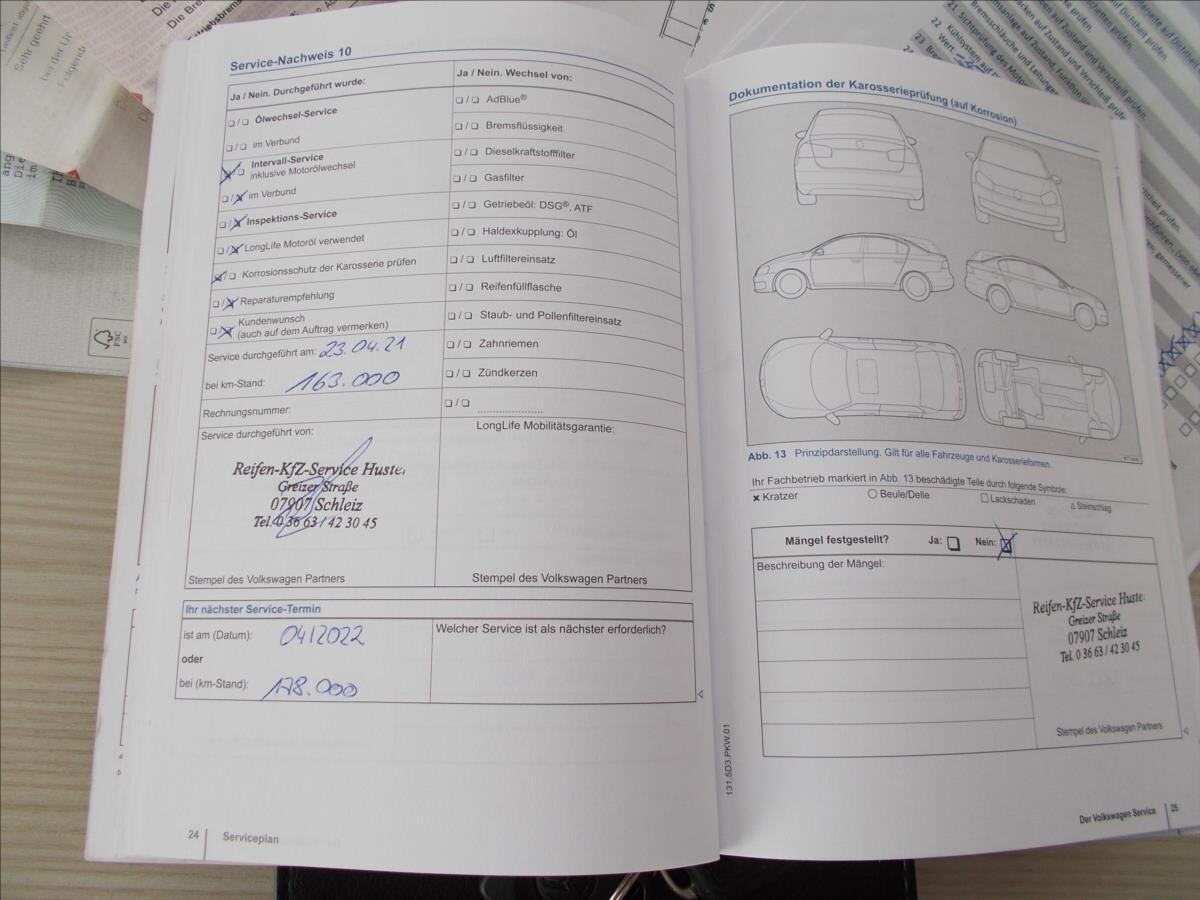 Service-Nachweis 10
Ja / Nein. Durchgeführt wurde:
❏ / ❏ Ölwechsel-Service
❏ / ❏ im Verbund
☒ / ❏ Intervall-Service
inklusive Motorölwechsel
❏ / ☒ im Verbund
❏ / ☒ Inspektions-Service
❏ / ☒ LongLife Motoröl verwendet
☒ / ❏ Korrosionsschutz der Karosserie prüfen
❏ / ☒ Reparaturempfehlung
❏ / ☒ Kundenwunsch
(auch auf dem Auftrag vermerken)
Service durchgeführt am: 23.04.21
bei km-Stand: 163.000
Rechnungsnummer:
Service durchgeführt von:
Reifen-KfZ-Service Huster
Greizer Straße
07907 Schleiz
Tel. 0 36 63 / 42 30 45
Stempel des Volkswagen Partners
Ja / Nein. Wechsel von:
❏ / ❏ AdBlue®
❏ / ❏ Bremsflüssigkeit
❏ / ❏ Dieselkraftstofffilter
❏ / ❏ Gasfilter
❏ / ❏ Getriebeöl: DSG®, ATF
❏ / ❏ Haldexkupplung: Öl
❏ / ❏ Luftfiltereinsatz
❏ / ❏ Reifenfüllflasche
❏ / ❏ Staub- und Pollenfiltereinsatz
❏ / ❏ Zahnriemen
❏ / ❏ Zündkerzen
❏ / ❏ .....................
LongLife Mobilitätsgarantie:
Stempel des Volkswagen Partners
Ihr nächster Service-Termin
ist am (Datum): 04/2022
oder
bei (km-Stand): 178.000
Welcher Service ist als nächster erforderlich?
24 Serviceplan
Dokumentation der Karosserieprüfung (auf Korrosion)
Abb. 13 Prinzipdarstellung. Gilt für alle Fahrzeuge und Karosserieformen.
Ihr Fachbetrieb markiert in Abb. 13 beschädigte Teile durch folgende Symbole:
× Kratzer ○ Beule/Delle □ Lackschaden △ Steinschlag
Mängel festgestellt? Ja: ❏ Nein: ☒
Beschreibung der Mängel:
Reifen-KfZ-Service Huste
Greizer Straße
07907 Schleiz
Tel. 0 36 63 / 42 30 45
Stempel des Volkswagen Partners
131.5D3.PKW.01
Der Volkswagen Service 25
FSC
Sehr geehrt